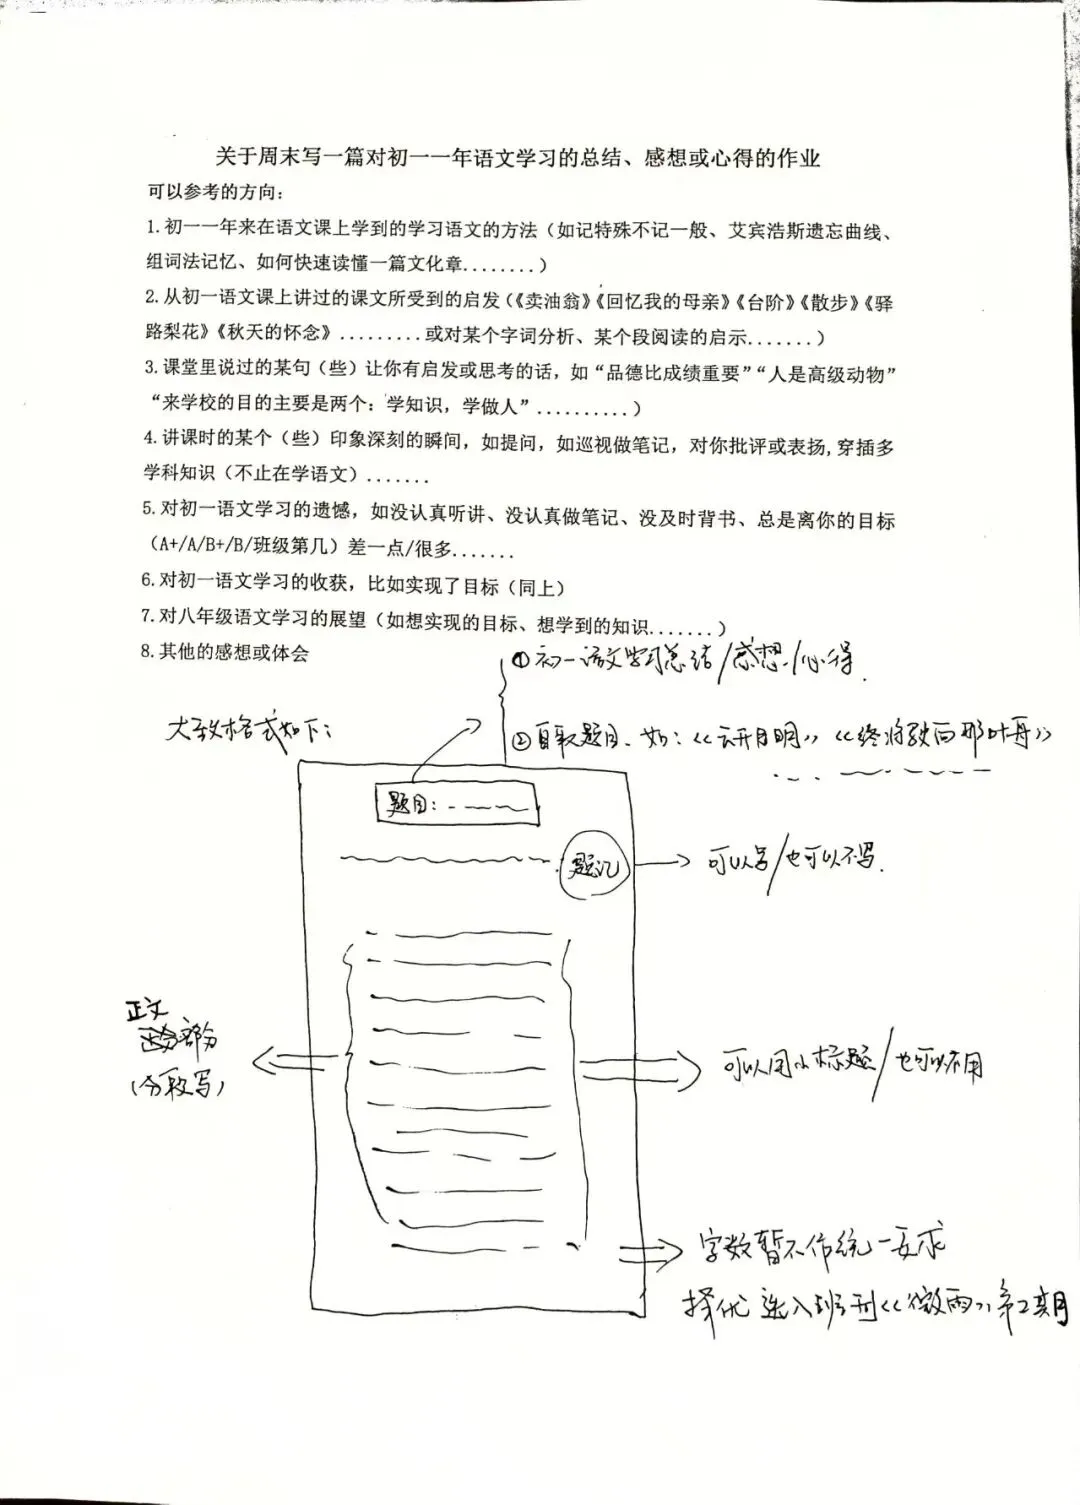 关于周末写一篇对初一一年语文学习的总结、感想或心得的作业
可以参考的方向：
1.初一一年来在语文课上学到的学习语文的方法（如记特殊不记一般、艾宾浩斯遗忘曲线、
组词法记忆、如何快速读懂一篇文化章........）
2.从初一语文课上讲过的课文所受到的启发（《卖油翁》《回忆我的母亲》《台阶》《散步》《驿
路梨花》《秋天的怀念》.........或对某个字词分析、某个段阅读的启示.......）
3.课堂里说过的某句（些）让你有启发或思考的话，如“品德比成绩重要”“人是高级动物”
“来学校的目的主要是两个：学知识，学做人”..........）
4.讲课时的某个（些）印象深刻的瞬间，如提问，如巡视做笔记，对你批评或表扬,穿插多
学科知识（不止在学语文）.......
5.对初一语文学习的遗憾，如没认真听讲、没认真做笔记、没及时背书、总是离你的目标
（A+/A/B+/B/班级第几）差一点/很多.......
6.对初一语文学习的收获，比如实现了目标（同上）
7.对八年级语文学习的展望（如想实现的目标、想学到的知识.......）
8.其他的感想或体会
①初一语文学习总结/感想/心得.
大致格式如下：
②自取题目、如：《云开月明》《终将驶向那叶舟》
题目：
题记
可以写/也可以不写.
正文
部分
（分段写）
可以用小标题/也可以不用
字数暂不作统一要求
择优选入班刊《微雨》第2期